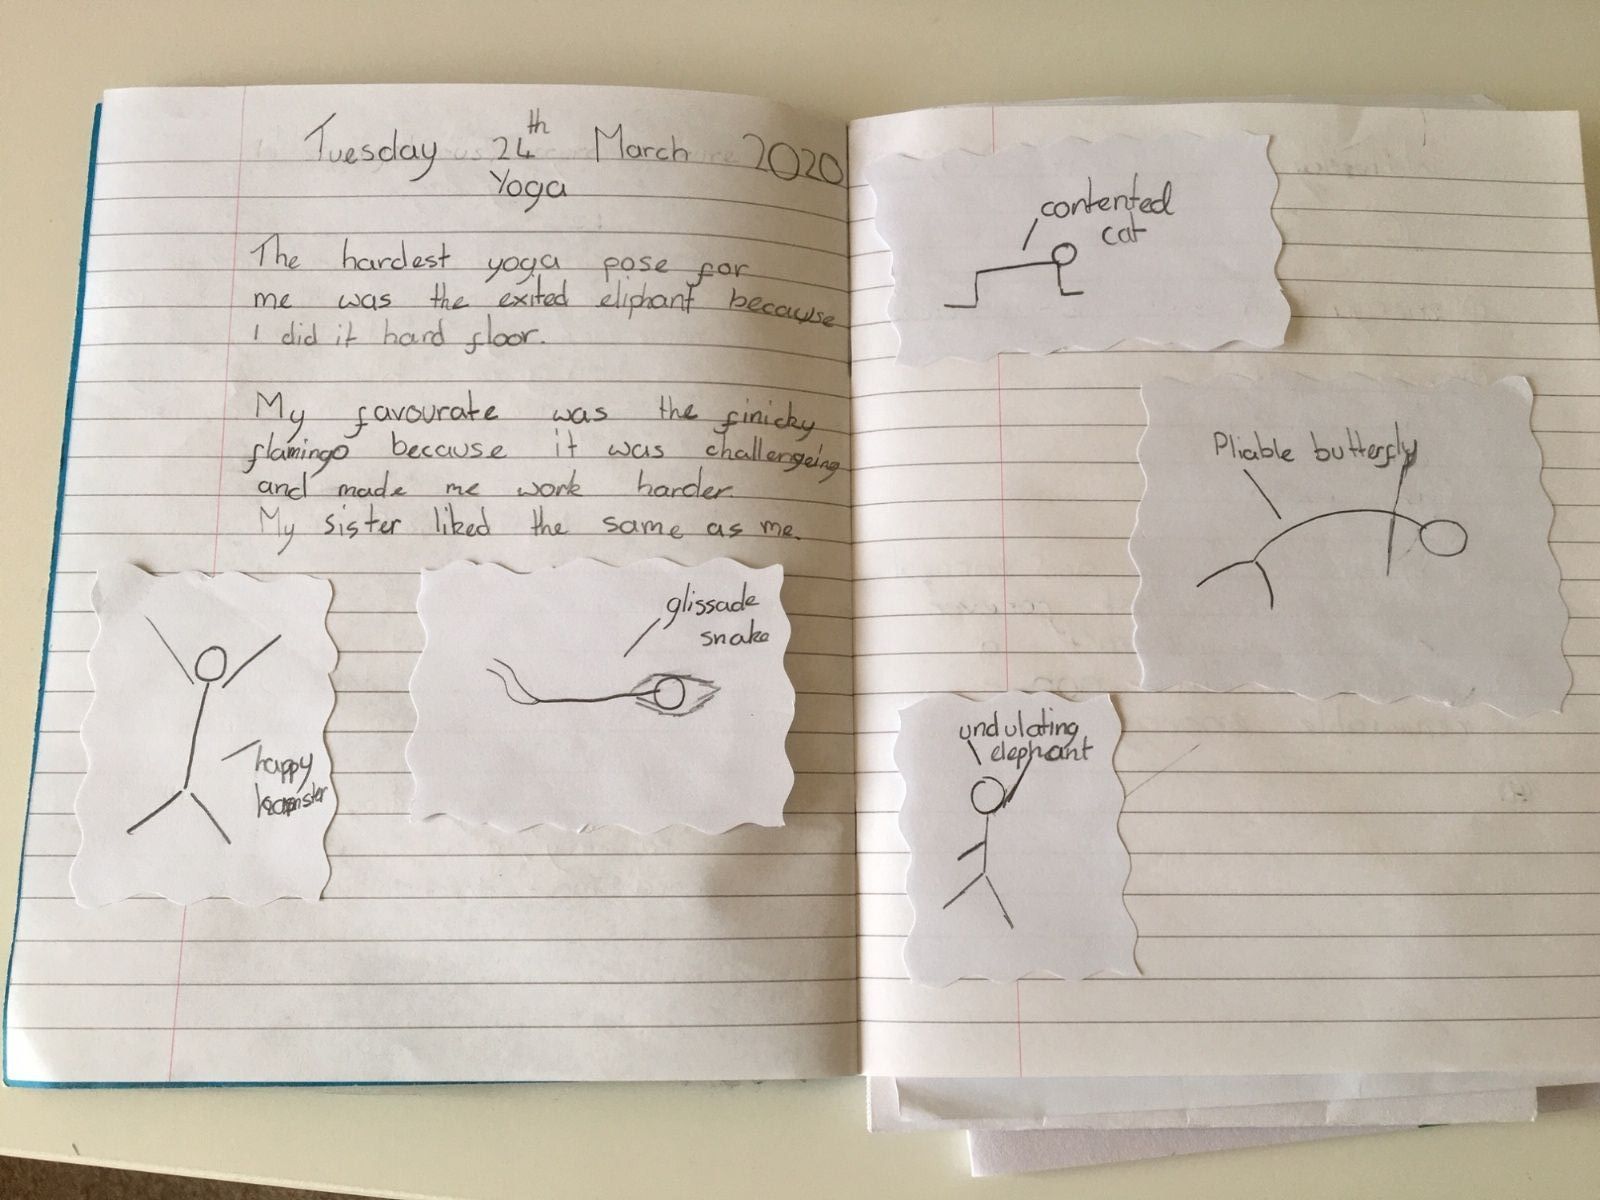 Tuesday 24th March 2020
Yoga
The hardest yoga pose for
me was the exited eliphant because
I did it hard floor.
My favourate was the finicky
flamingo because it was challengeing
and made me work harder.
My sister liked the same as me.
happy
hamster
glissade
snake
contented
cat
Pliable butterfly
undulating
elephant